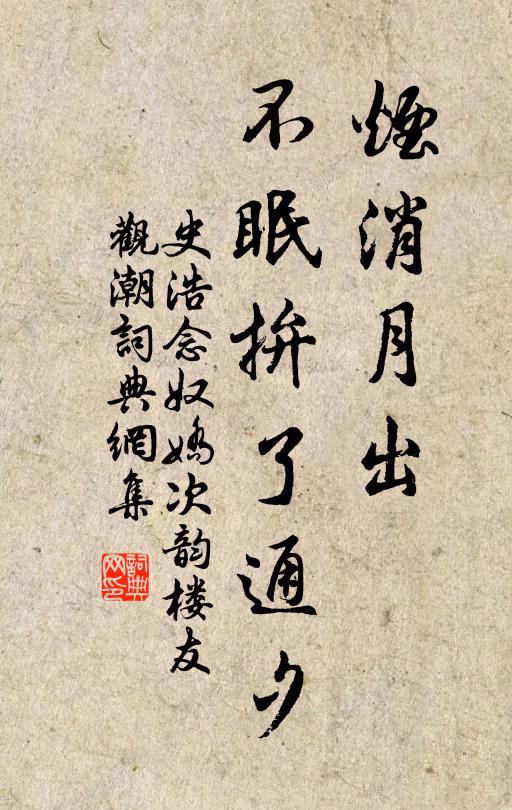 煙消月出
不眠拚了通夕
史浩念奴嬌次韵楼友
觀潮詞典網集
詞典
网印